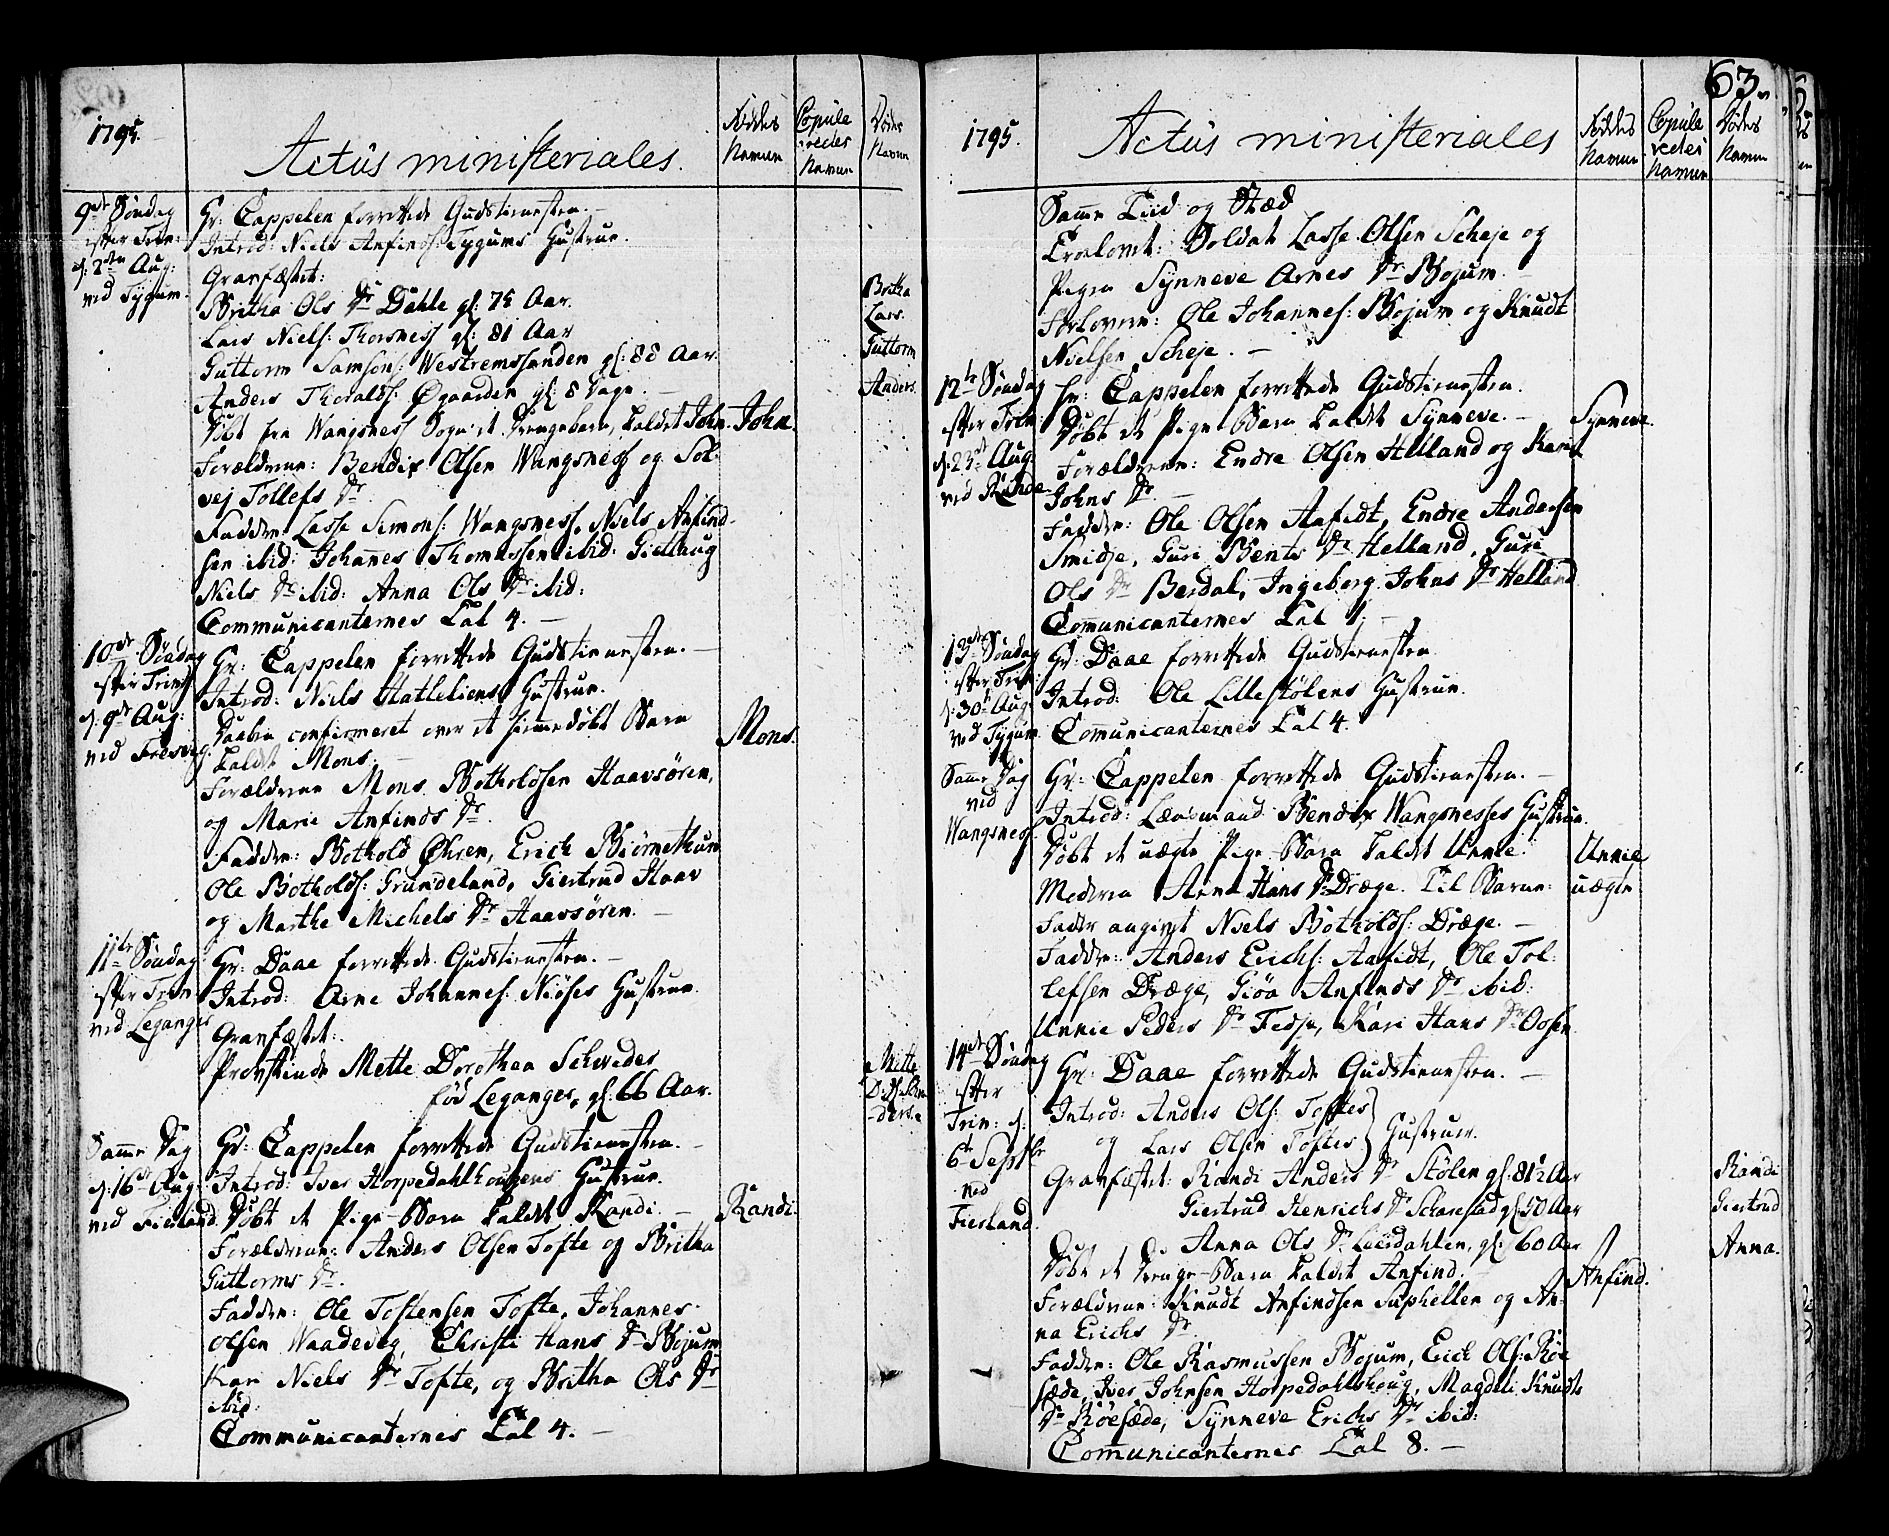 1795.
Actus ministeriales.
Føddes Namun
Copuleredes Namun
Dødes Namun
9de Søndag
efter Trin:
d: 2den Aug:
ved Tygum.
Hr: Cappelen forrettede Gudstienesten. –
Introd: Niels Anfinds: Tygums Hustrue.
Gravfæstet:
Britha Ols Dr Dahle gl: 75 Aar.
Britha
Lars Niels: Thorsness gl: 81 Aar
Lars.
Guttorm Samsons: Westremssanden gl: 88 Aar.
Guttorm
Anders Thoralds: Øgaarden gl: 8 Dage. –
Anders.
Døbt fra Wangsness Sogn et Drengebarn, kaldet John.
John.
Forældrene: Bendix Olsen Wangsness og Sol-
vej Tollefs Dr.
Faddere Lasse Simons: Wangsness, Niels Anfind-
sen ibid: Johannes Thomessen ibid: Giertrug
Niels Dr ibid: Anna Ols Dr ibid:
Communicanternes Tal 4. –
10de Søndag
efter Trinit
d: 9de Aug:
ved Fresvig.
Hr: Cappelen forrettede Gudstienesten. –
Introd: Niels Hatleliens Hustrue.
Daaben confirmeret over et hiemmedøbt Barn
kaldet Mons. –
Mons.
Forældrene Mons Botholdsen Haavsøren,
og Marie Anfinds Dr.
Faddere: Bothold Øhren, Erich Biørnethun
Ole Botholds: Grundeland, Giertrud Haav
og Marthe Michels Dr Haavsøren. –
11te Søndag
efter Trin:
ved Leganger
Hr: Daae forrettede Gudstienesten. –
Introd: Arne Johannes: Niøses Hustrue.
Gravfæstet:
Provstinde Mette Dorothea Schreder
fød Leganger, gl: 66 Aar.
Mette
Samme Dag
d: 16de Aug:
ved Fierland.
Hr: Cappelen forrettede Gudstienesten. –
Introd: Iver Horpedahlhougens Hustrue.
Døbt et Pige-Barn kaldet Randi. –
Randi.
Forældrene: Anders Olsen Tofte og Britha
Guttorms Dr.
Faddere: Ole Tostensen Tofte, Johannes
Olsen Waadevig, Christi Hans Dr Bojum
Kari Niels Dr Tofte, og Britha Ols Dr
ibid:
Communicanternes Tal 4. –
63.
1795.
Actus ministeriales
Føddes Namun
Copuleredes Namun
Dødes Namun
Samme Tiid og Stæd
Trolovet: Soldat Lasse Olsen Scheje og
Pigen Synneve Arnes Dr Bojum. –
Forlovere: Ole Johannes: Bojum og Knudt
Nielsen Scheje. –
12te Søndag
efter Trin:
d: 23de Aug:
Hr: Cappelen forrettede Gudstienesten.
Døbt et Pige Barn kaldet Synneve. –
Synneve.
Forældrene: Endre Olsen Helland og Kari
Johns Dr. –
Faddere: Ole Olsen Aafedt, Endre Andersen
Smidje, Guri Bents Dr Helland, Guri
Ols Dr Berdal, Ingeborg Johns Dr Helland
Communicanternes Tal 1. –
13de Søndag
efter Trin:
d: 30te Aug:
ved Tygum
Hr: Daae forrettede Gudstienesten
Introd: Ole Lillestølens Hustrue.
Communicanternes Tal 4.
Samme Dag
ved
Wangsness
Hr: Cappelen forrettede Gudstienesten. –
Introd: Lænsmand Bendix Wangsnesses Hustrue.
Døbt et uægte Pige-Barn kaldet Unnie.
Unnie
Moderen Anna Hans Dr Dræge. Til Barne-
uægte
Fader angivet Niels Botholds: Dræge. –
Faddere: Anders Erichs: Aafedt, Ole Tol-
lefsen Dræge, Giøa Anfinds Dr ibid:
Unnie Peders Dr Fedje, Kari Hans Dr Oosen
14de Søndag
efter
Trin: d:
6te Septbr
ved
Fierland.
Hr: Daae forrettede Gudstienesten. –
Introd: Anders Ols: Toftes
og Lars Olsen Toftes } Hustruer.
Gravfæstet: Randi Anders Dr Stølen gl: 81½ Aar
Randi
Giertrud Henrichs Dr gl: 50 Aar
Giertrud
Anna Ols Dr gl: 60 Aar
Anna.
Døbt et Drenge-Barn kaldet Anfind. –
Anfind.
Forældrene: Knudt Anfindsen Suphellen og An-
na Erichs Dr
Faddere: Ole Rasmussen Bojum, Erich Ols: Røe
sæde, Iver Johnsen Horpedahlshoug, Magdeli Knudts
Dr Røesæde, Synneve Erichs Dr ibid:
Communicanternes Tal 8. –